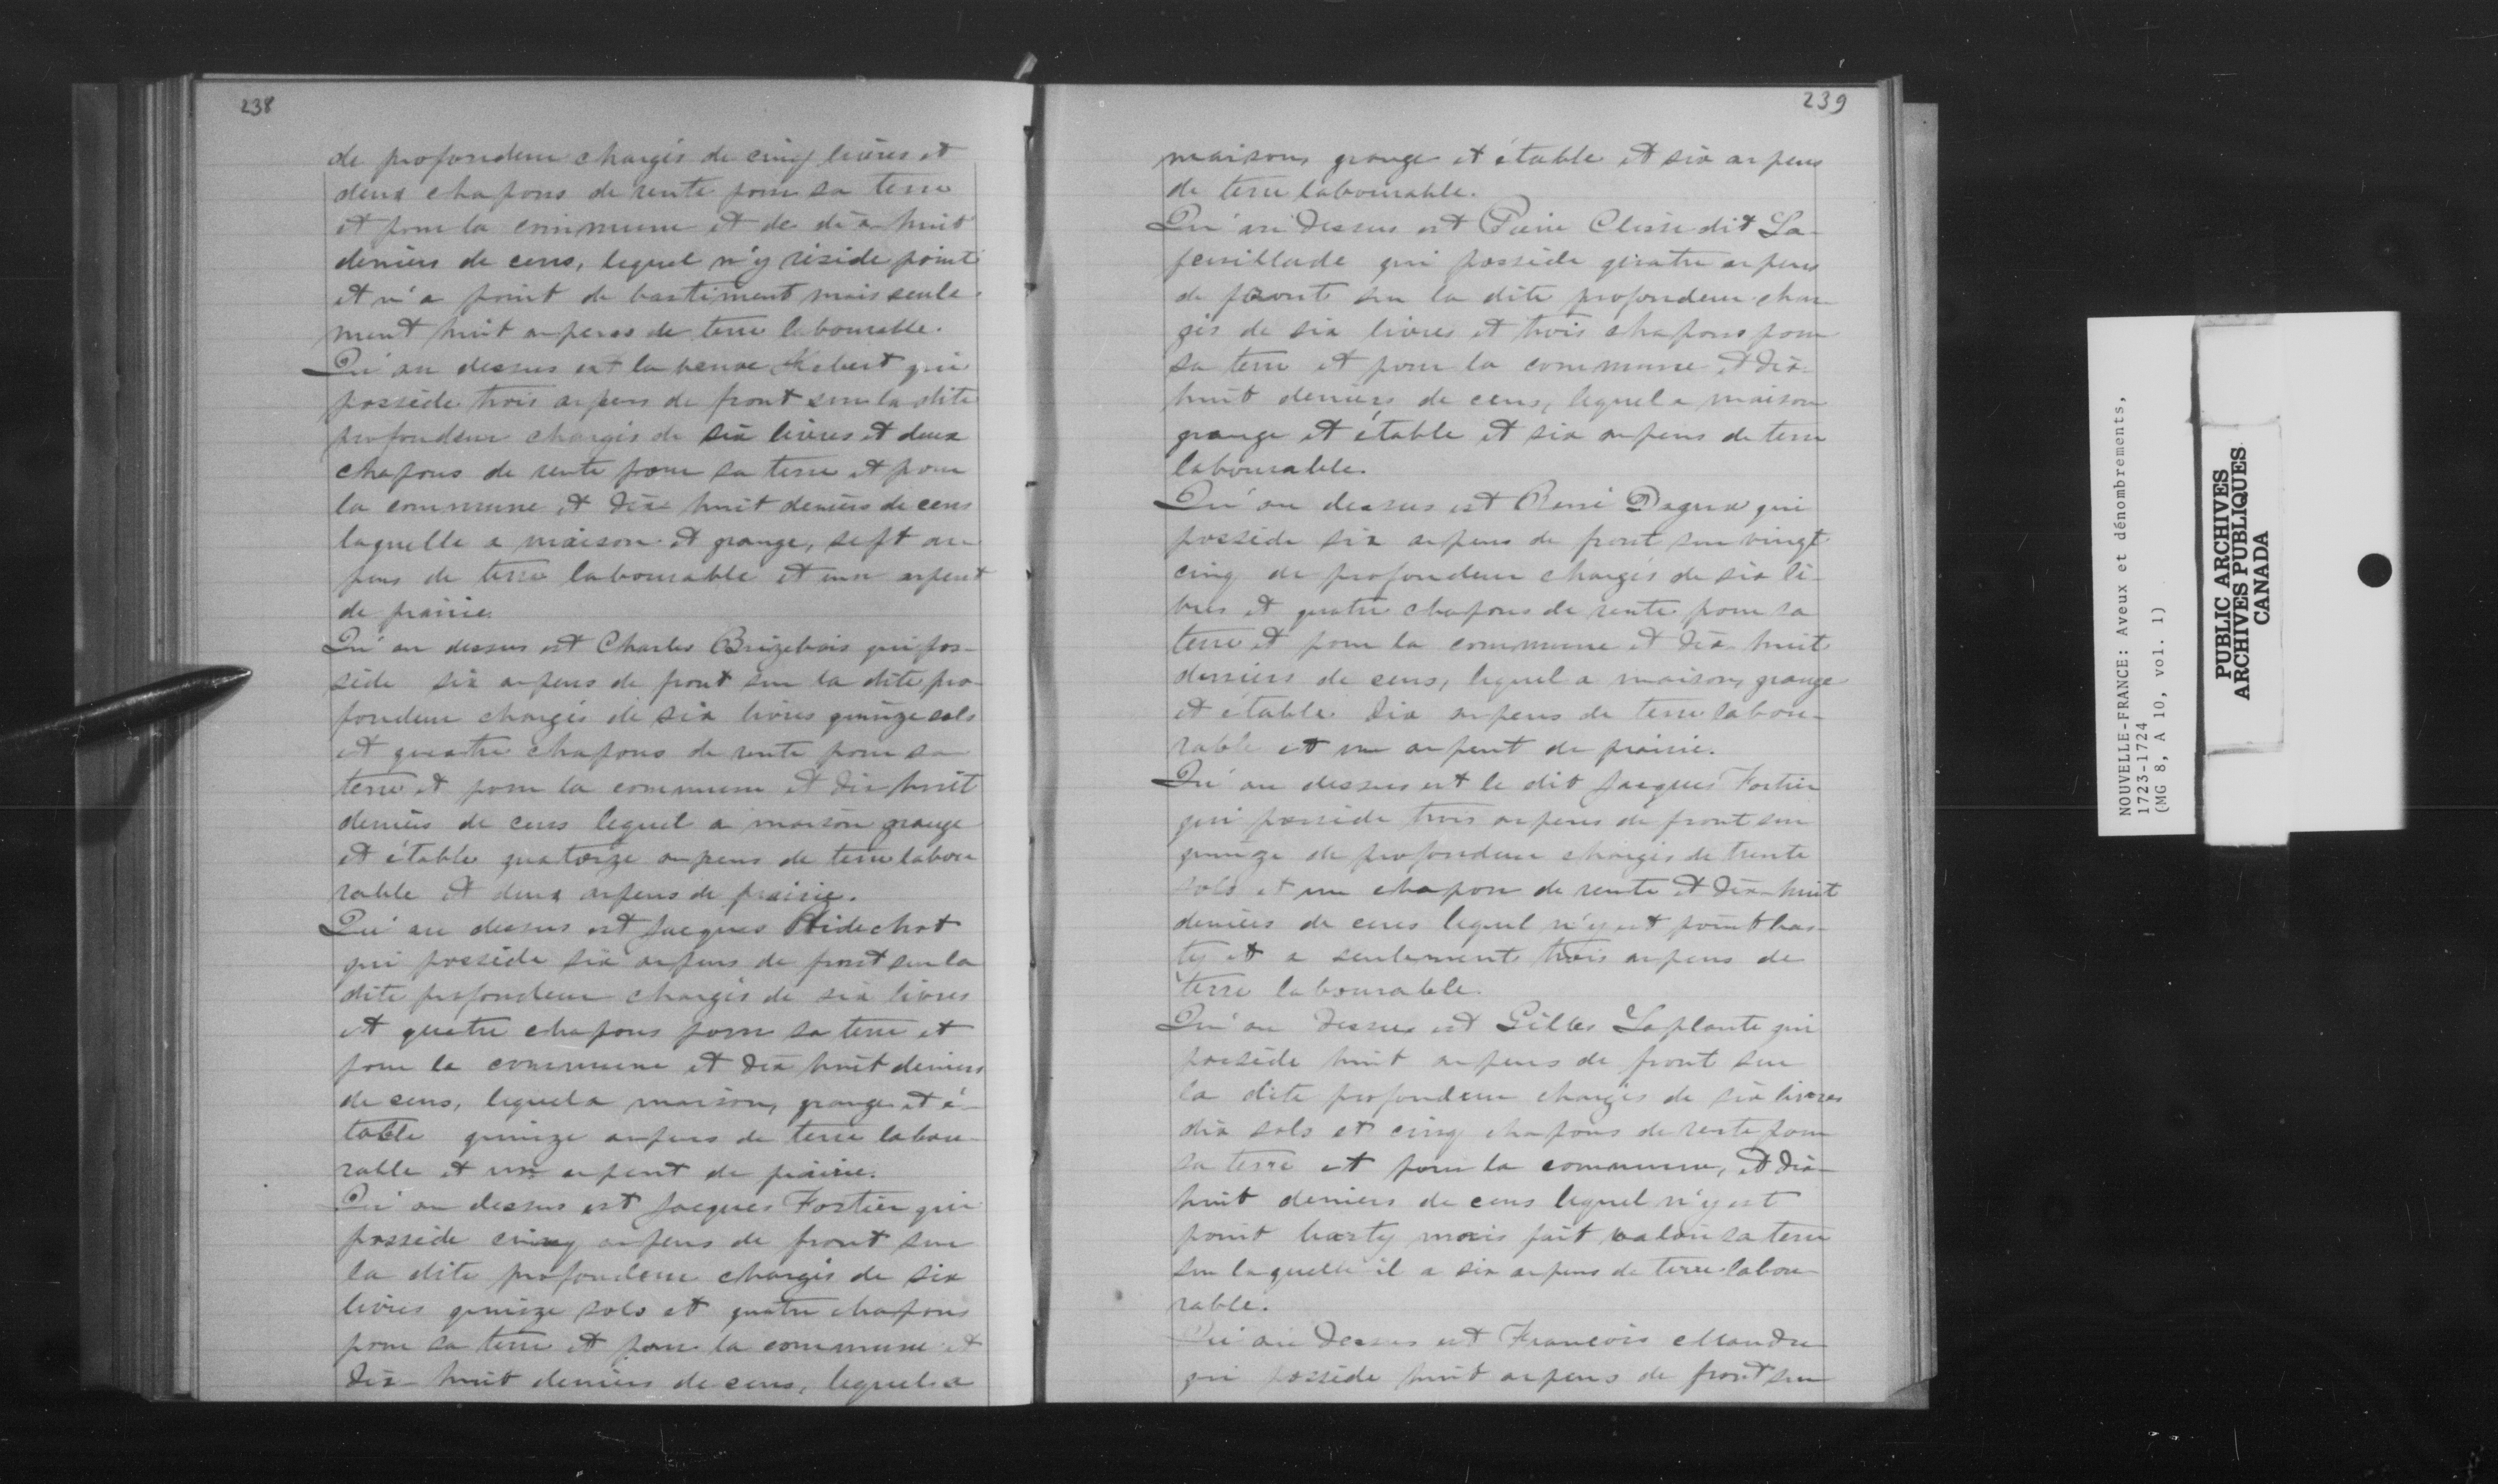 238
de profondeur chargés de cinq livres et
deux chapons de rente pour sa terre
et pour la commune et de dix huit
deniers de cens, lequel n'y réside point
et n'a point de bastiment mais seule-
ment huit arpens de terre labourable.
Qu'au dessus est la veuve Hebert qui
possède trois arpens de front sur la dite
profondeur chargés de six livres et deux
chapons de rente pour sa terre et pour
la commune et dix huit deniers de cens
laquelle a maison et grange, sept ar-
pens de terre labourable et un arpent
de prairie.
Qu'au dessus est Charles Brizebois qui pos-
sède six arpens de front sur la dite pro-
fondeur chargés de six livres quinze sols
et quatre chapons de rente pour sa
terre et pour la commune et dix huit
deniers de cens lequel a maison grange
et étable quatorze arpens de terre labou
rable et deux arpens de prairie.
Qu'au dessus est Jacques
qui possède six arpens de front sur la
dite profondeur chargés de six livres
et quatre chapons pour sa terre et
pour la commune et dix huit deniers
de cens, lequel a maison, grange et é-
table quinze arpens de terre labou-
rable et un arpent de prairie.
Qu'au dessus est Jacques Fortier qui
possède cinq arpens de front sur
la dite profondeur chargés de six
livres quinze sols et quatre chapons
pour sa terre et pour la commune et
dix-huit deniers de cens, lequel a
239
maison, grange et étable et six arpens
de terre labourable.
Qu'au dessus est Pierre dit La-
feuillade qui possède quatre arpens
de front sur la dite profondeur char
gés de six livres et trois chapons pour
sa terre et pour la commune et dix-
huit deniers de cens, lequel a maison
grange et étable et six arpens de terre
labourable.
Qu'au dessus est René qui
possède six arpens de front sur vingt
cinq de profondeur chargés de six li-
vres et quatre chapons de rente pour sa
terre et pour la commune et dix-huit
deniers de cens, lequel a maison, grange
et étable dix arpens de terre labou-
rable et un arpent de prairie.
Qu'au dessus est le dit Jacques Fortier
qui possède trois arpens de front sur
quinze de profondeur chargés de trente
sols et un chapon de rente et dix-huit
deniers de cens lequel n'y est point bas-
ty et a seulement trois arpens de
terre labourable.
Qu'au dessus est Gilles Laplante qui
possède huit arpens de front sur
la dite profondeur chargés de six livres
dix sols et cinq chapons de rente pour
sa terre et pour la commune, et dix-
huit deniers de cens lequel n'y est
point basty mais fait valoir sa terre
sur laquelle il a six arpens de terre labou-
rable.
Qu'au dessus est François Mandre
qui possède huit arpens de front sur
NOUVELLE-FRANCE: Aveux et dénombrements,
1723-1724
(MG 8, A 10, vol. 1)
PUBLIC ARCHIVES
ARCHIVES PUBLIQUES
CANADA